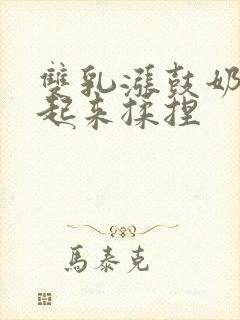 雙乳漲鼓奶
起来揉捏
馬泰克